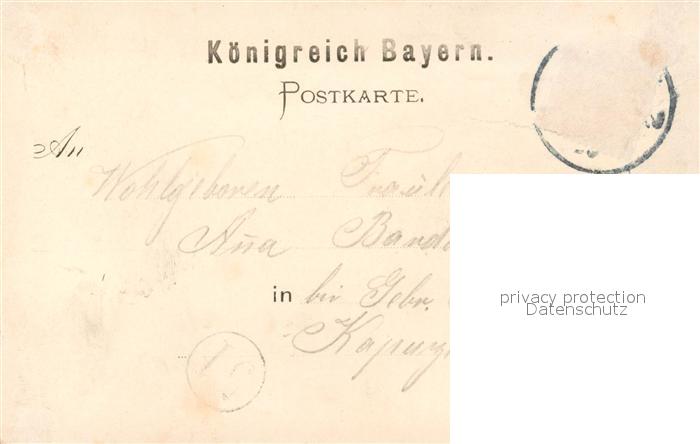 Königreich Bayern.
POSTKARTE.
An
Wohlgeboren Fräul
Anna Band
in bei Gebr.
Kapuz
privacy protection
Datenschutz